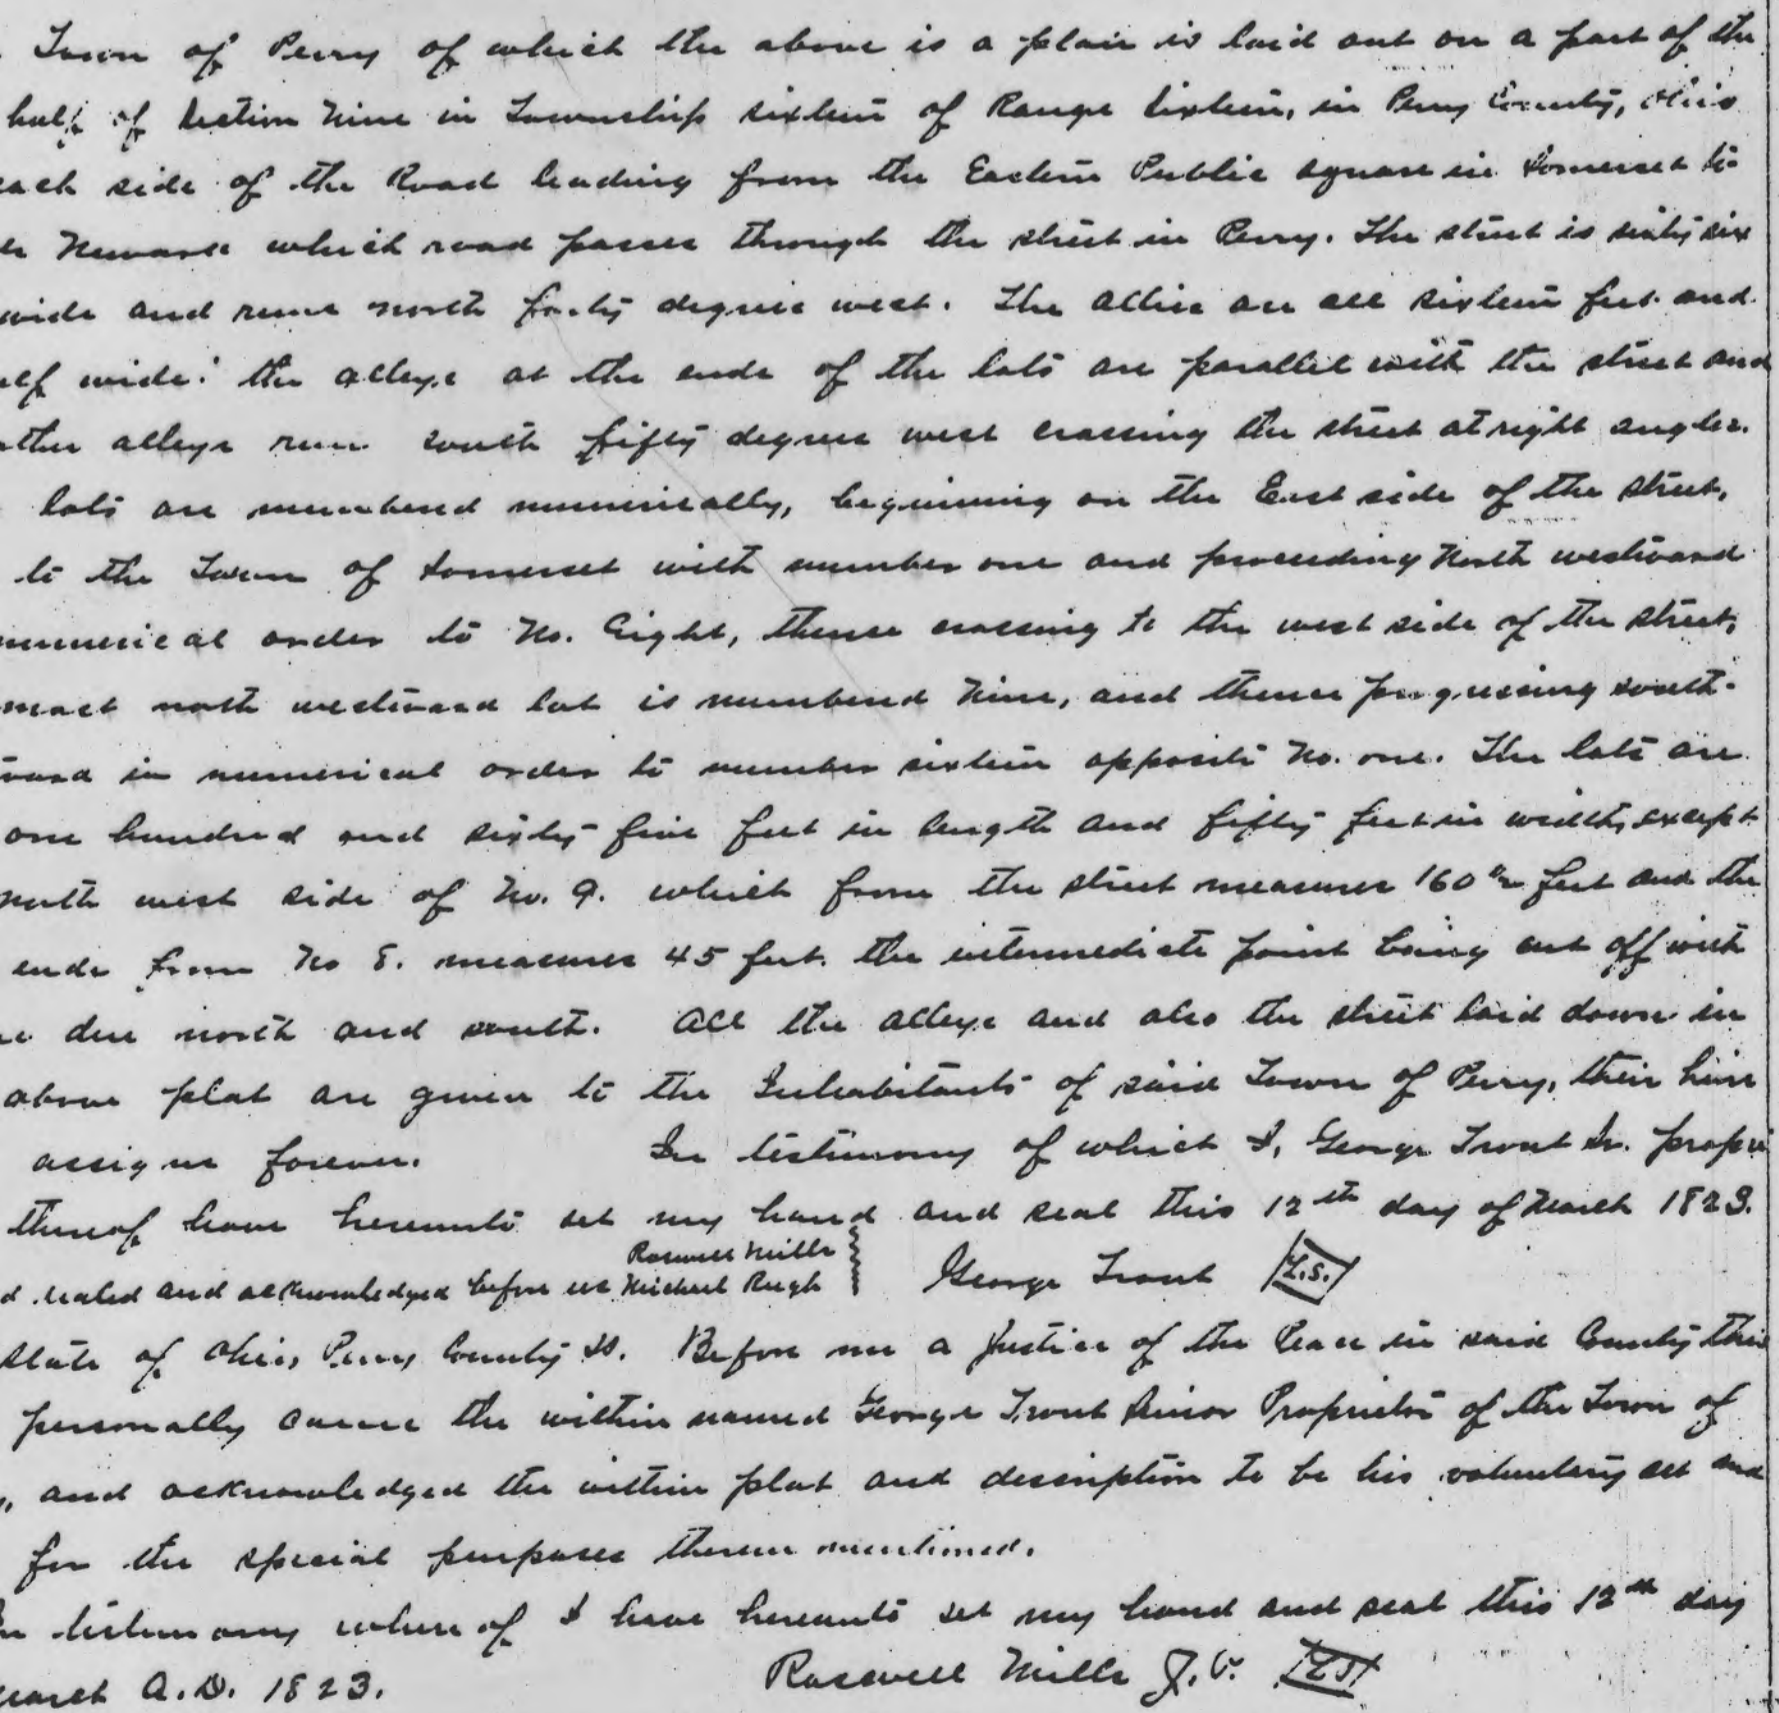 Town of Perry of which the above is a plan is laid out on a part of the
half of Section Nine in Township sixteen of Range Sixteen, in Perry County, Ohio
each side of the Road leading from the Eastern Public square in Somerset to
Newark which road passes through the street in Perry. The street is sixty six
wide and runs north forty degrees west. The allies are all sixteen feet and
elf wide: the alleys at the ends of the lots are parallel with the street and
other alleys run south fifty degrees west crossing the street at right angles.
lots are numbered numerically, beginning on the East side of the street,
to the Town of Somerset with number one and proceeding North westward
numerical order to No. Eight, thense crossing to the west side of the street,
most north westward lot is numbered Nine, and thence progressing south-
ward in numerical order to number sixteen opposite No. one. The lots are
one hundred and sixty five feet in length and fifty feet in width, except
north west side of No. 9. which from the street measures 160 ½ feet and the
ends from No 8. measures 45 feet. the intermediate point being cut off with
due north and south. All the alleys and also the street laid down in
above plat are given to the Inhabitants of said Town of Perry, their heirs
assigns forever. In testimony of which I, George Trout Sr. propri
thereof have hereunto set my hand and seal this 12th day of March 1823.
Roswell Mills
d sealed and acknowledged before us Michael Rugh } George Trout [L.S.]
State of Ohio, Perry County SS. Before me a Justice of the Peace in said County this
personally came the within named George Trout Senior Proprietor of the Town of
, and acknowledged the within plat and description to be his voluntary act and
for the special purposes therein mentioned.
In testimony whereof I have hereunto set my hand and seal this 12th day
March A.D. 1823. Roswell Mills J.P. [L.S.]